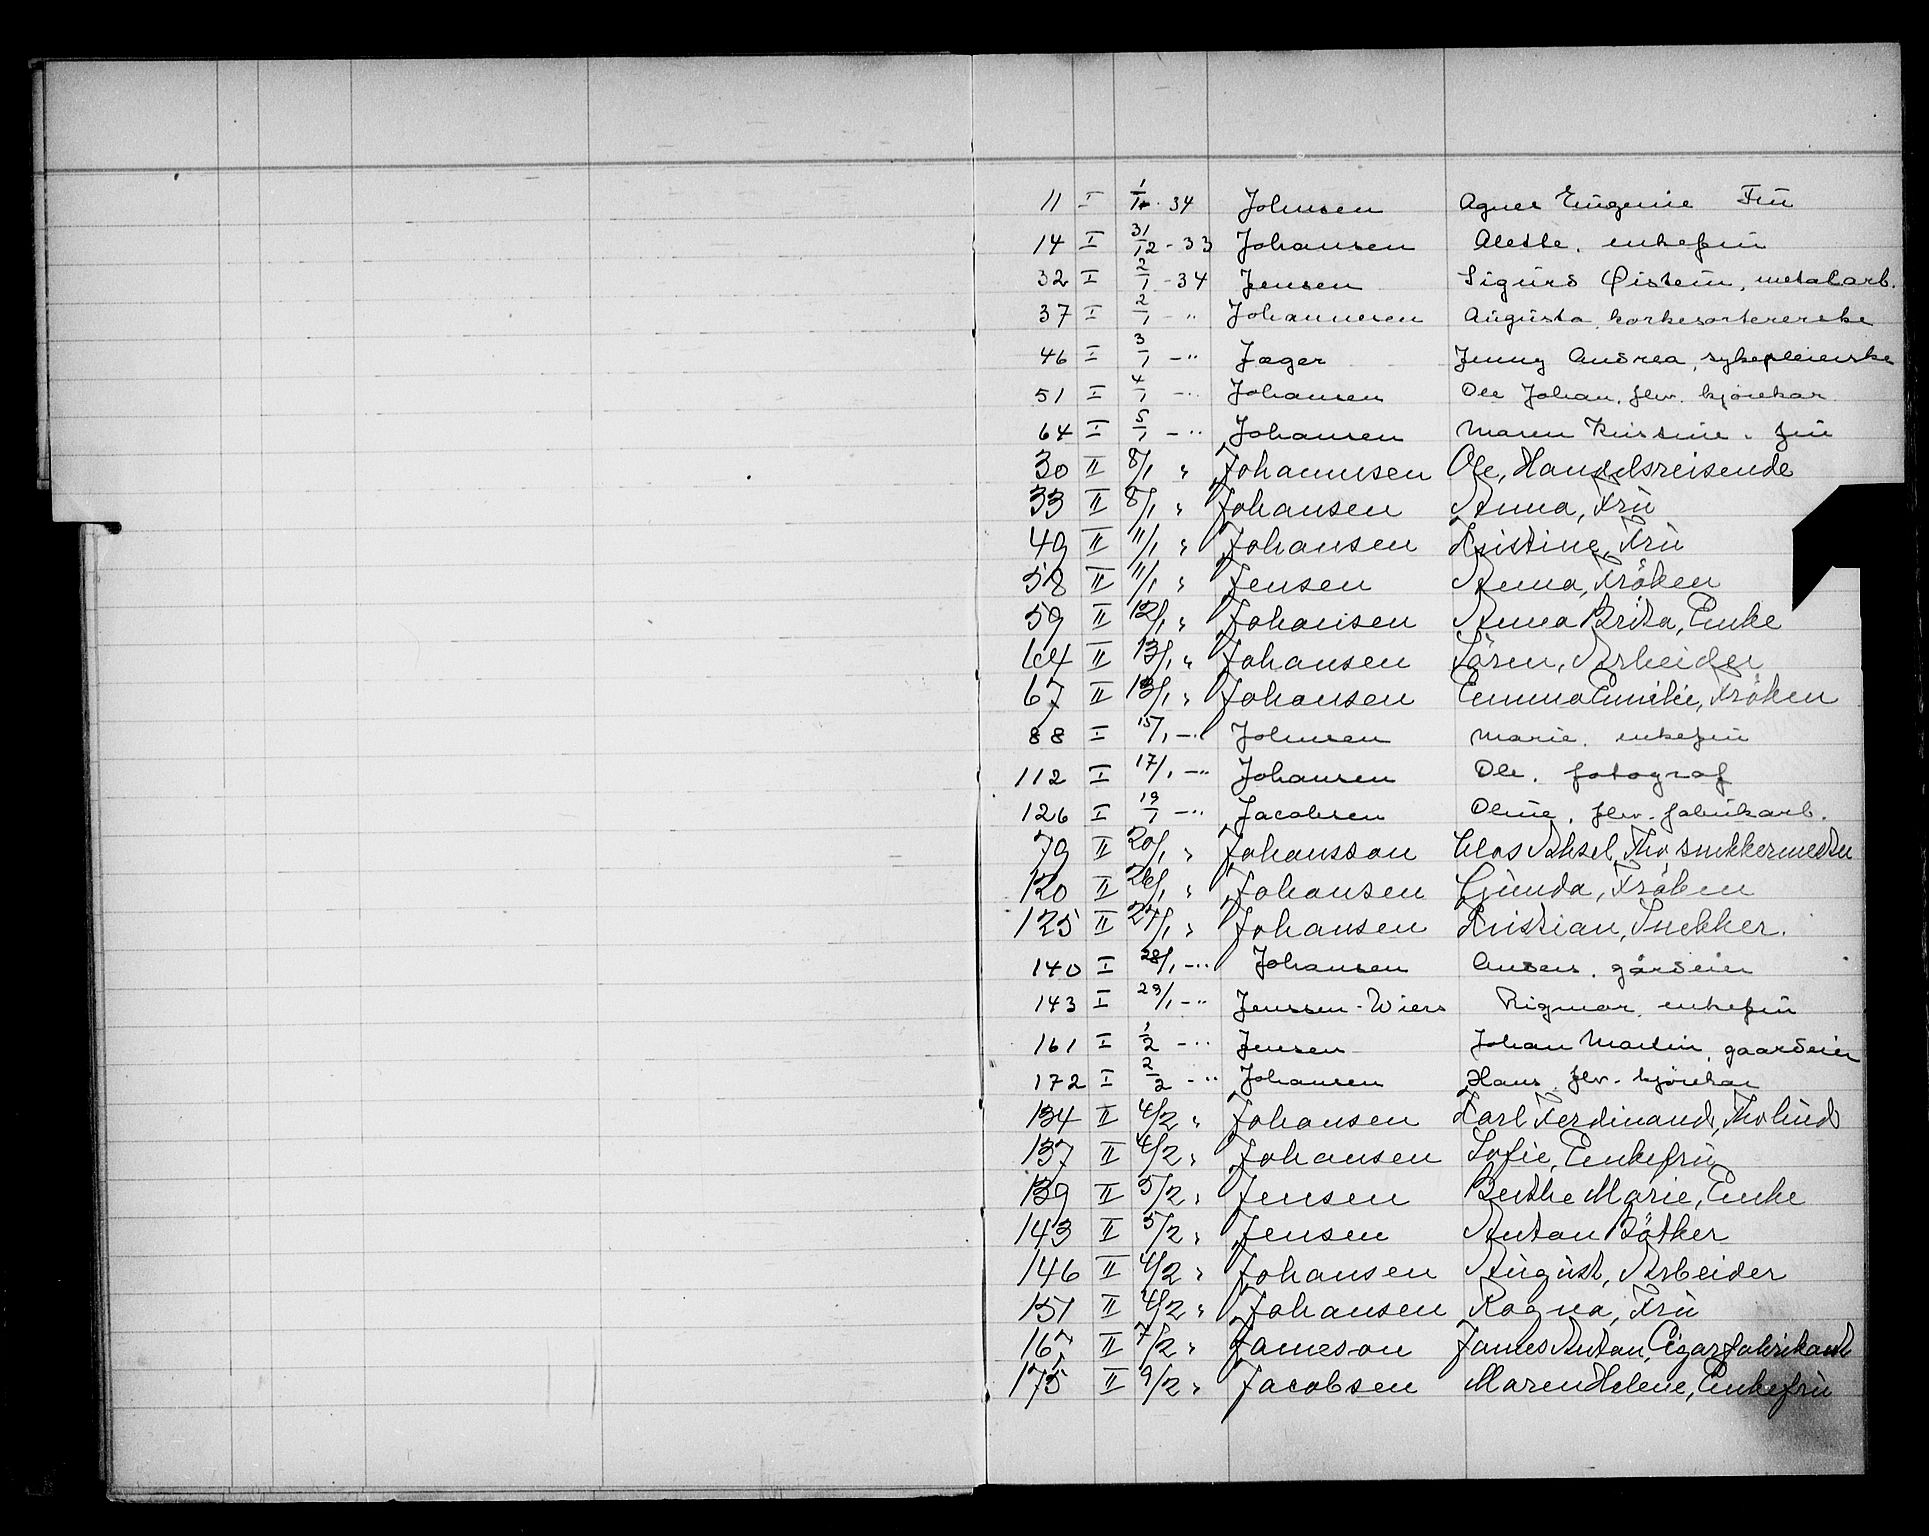 11 I 1/1 - 34 Johnsen Agnes Eugenie Frü
14 I 31/12 - 33 Johansen Alette, enkefrü
32 I 2/1 - 34 Jensen Sigurd Øistein, metalarb.
37 I 2/1 - " Johannesen Augusta, korkesortererske
46 I 3/1 - " Jæger Jenny Andrea, sykepleierske
51 I 4/1 - " Johansen Ole Johan, fhv. kjørekar
64 I 5/1 - " Johansen Maren Kirstine, frü
30 II 8/1 " Johannisen Ole, Handelsreisende
33 II 8/1 " Johansen Anna, Frü
49 II 11/1 " Johansen Kristine, Frü
58 II 11/1 " Jensen Anna, Fröken
59 II 12/1 " Johansen Anna Brita, Enke
64 II 13/1 " Johansen Sören, Arbeider
67 II 13/1 " Johansen Emma Emilie, Fröken
88 I 15/1 - " Johnsen Marie, enkefrü
112 I 17/1 - " Johansen Ole, fotograf
126 I 19/1 - " Jacobsen Oline, fhv. fabrikarb.
79 II 20/1 " Johansson Clas Aksel, Fhv snekkermester
120 II 26/1 " Johansen Gunda, Fröken
125 II 27/1 " Johansen Kristian, Snekker.
140 I 28/1 - " Johansen Anders, gårdeier
143 I 29/1 - " Jenssen-Wiers Rigmor, enkefrü
161 I 1/2 - " Jensen Johan Martin, gaardeier
172 I 2/2 - " Johansen Hans, fhv. kjørekar
134 II 4/2 " Johansen Karl Ferdinand,
137 II 4/2 " Johansen Sofie, Enkefrü
139 II 5/2 " Jensen Berthe Marie, Enke
143 II 5/2 " Jensen Anton Bötker
146 II 4/2 " Johansen August, Arbeider
151 II 4/2 " Johansen Ragna, Frü
167 II 7/2 " Jameson James Anton, Cigarfabrikant
175 II 9/2 " Jacobsen Maren Helene, Enkefrü